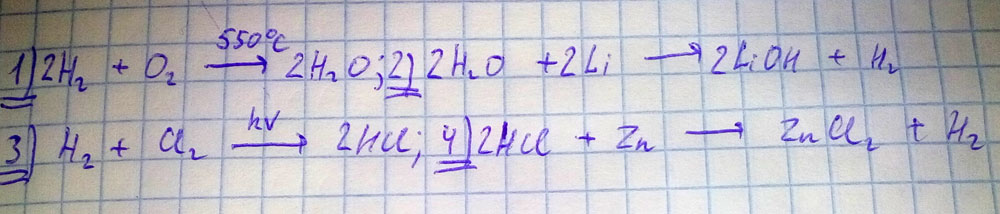 1) 2H₂ + O₂ 550°C → 2H₂O; 2) 2H₂O + 2Li → 2LiOH + H₂
3) H₂ + Cl₂ hν → 2HCl; 4) 2HCl + Zn → ZnCl₂ + H₂